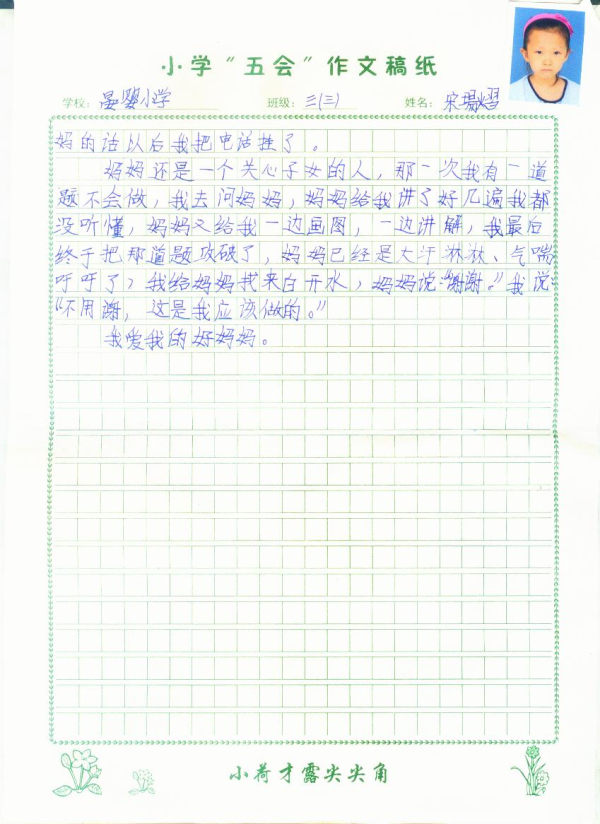 小学“五会”作文稿纸
学校：晏婴小学 班级：三(三) 姓名：宋瑞熠
妈的话以后我把电话挂了。
妈妈还是一个关心子女的人，那一次我有一道
题不会做，我去问妈妈，妈妈给我讲了好几遍我都
没听懂，妈妈又给我一边画图，一边讲解，我最后
终于把那道题攻破了，妈妈已经是大汗淋淋、气喘
吁吁了，我给妈妈找来白开水，妈妈说:“谢谢。”我说:
“不用谢，这是我应该做的。”
我爱我的好妈妈。
小荷才露尖尖角